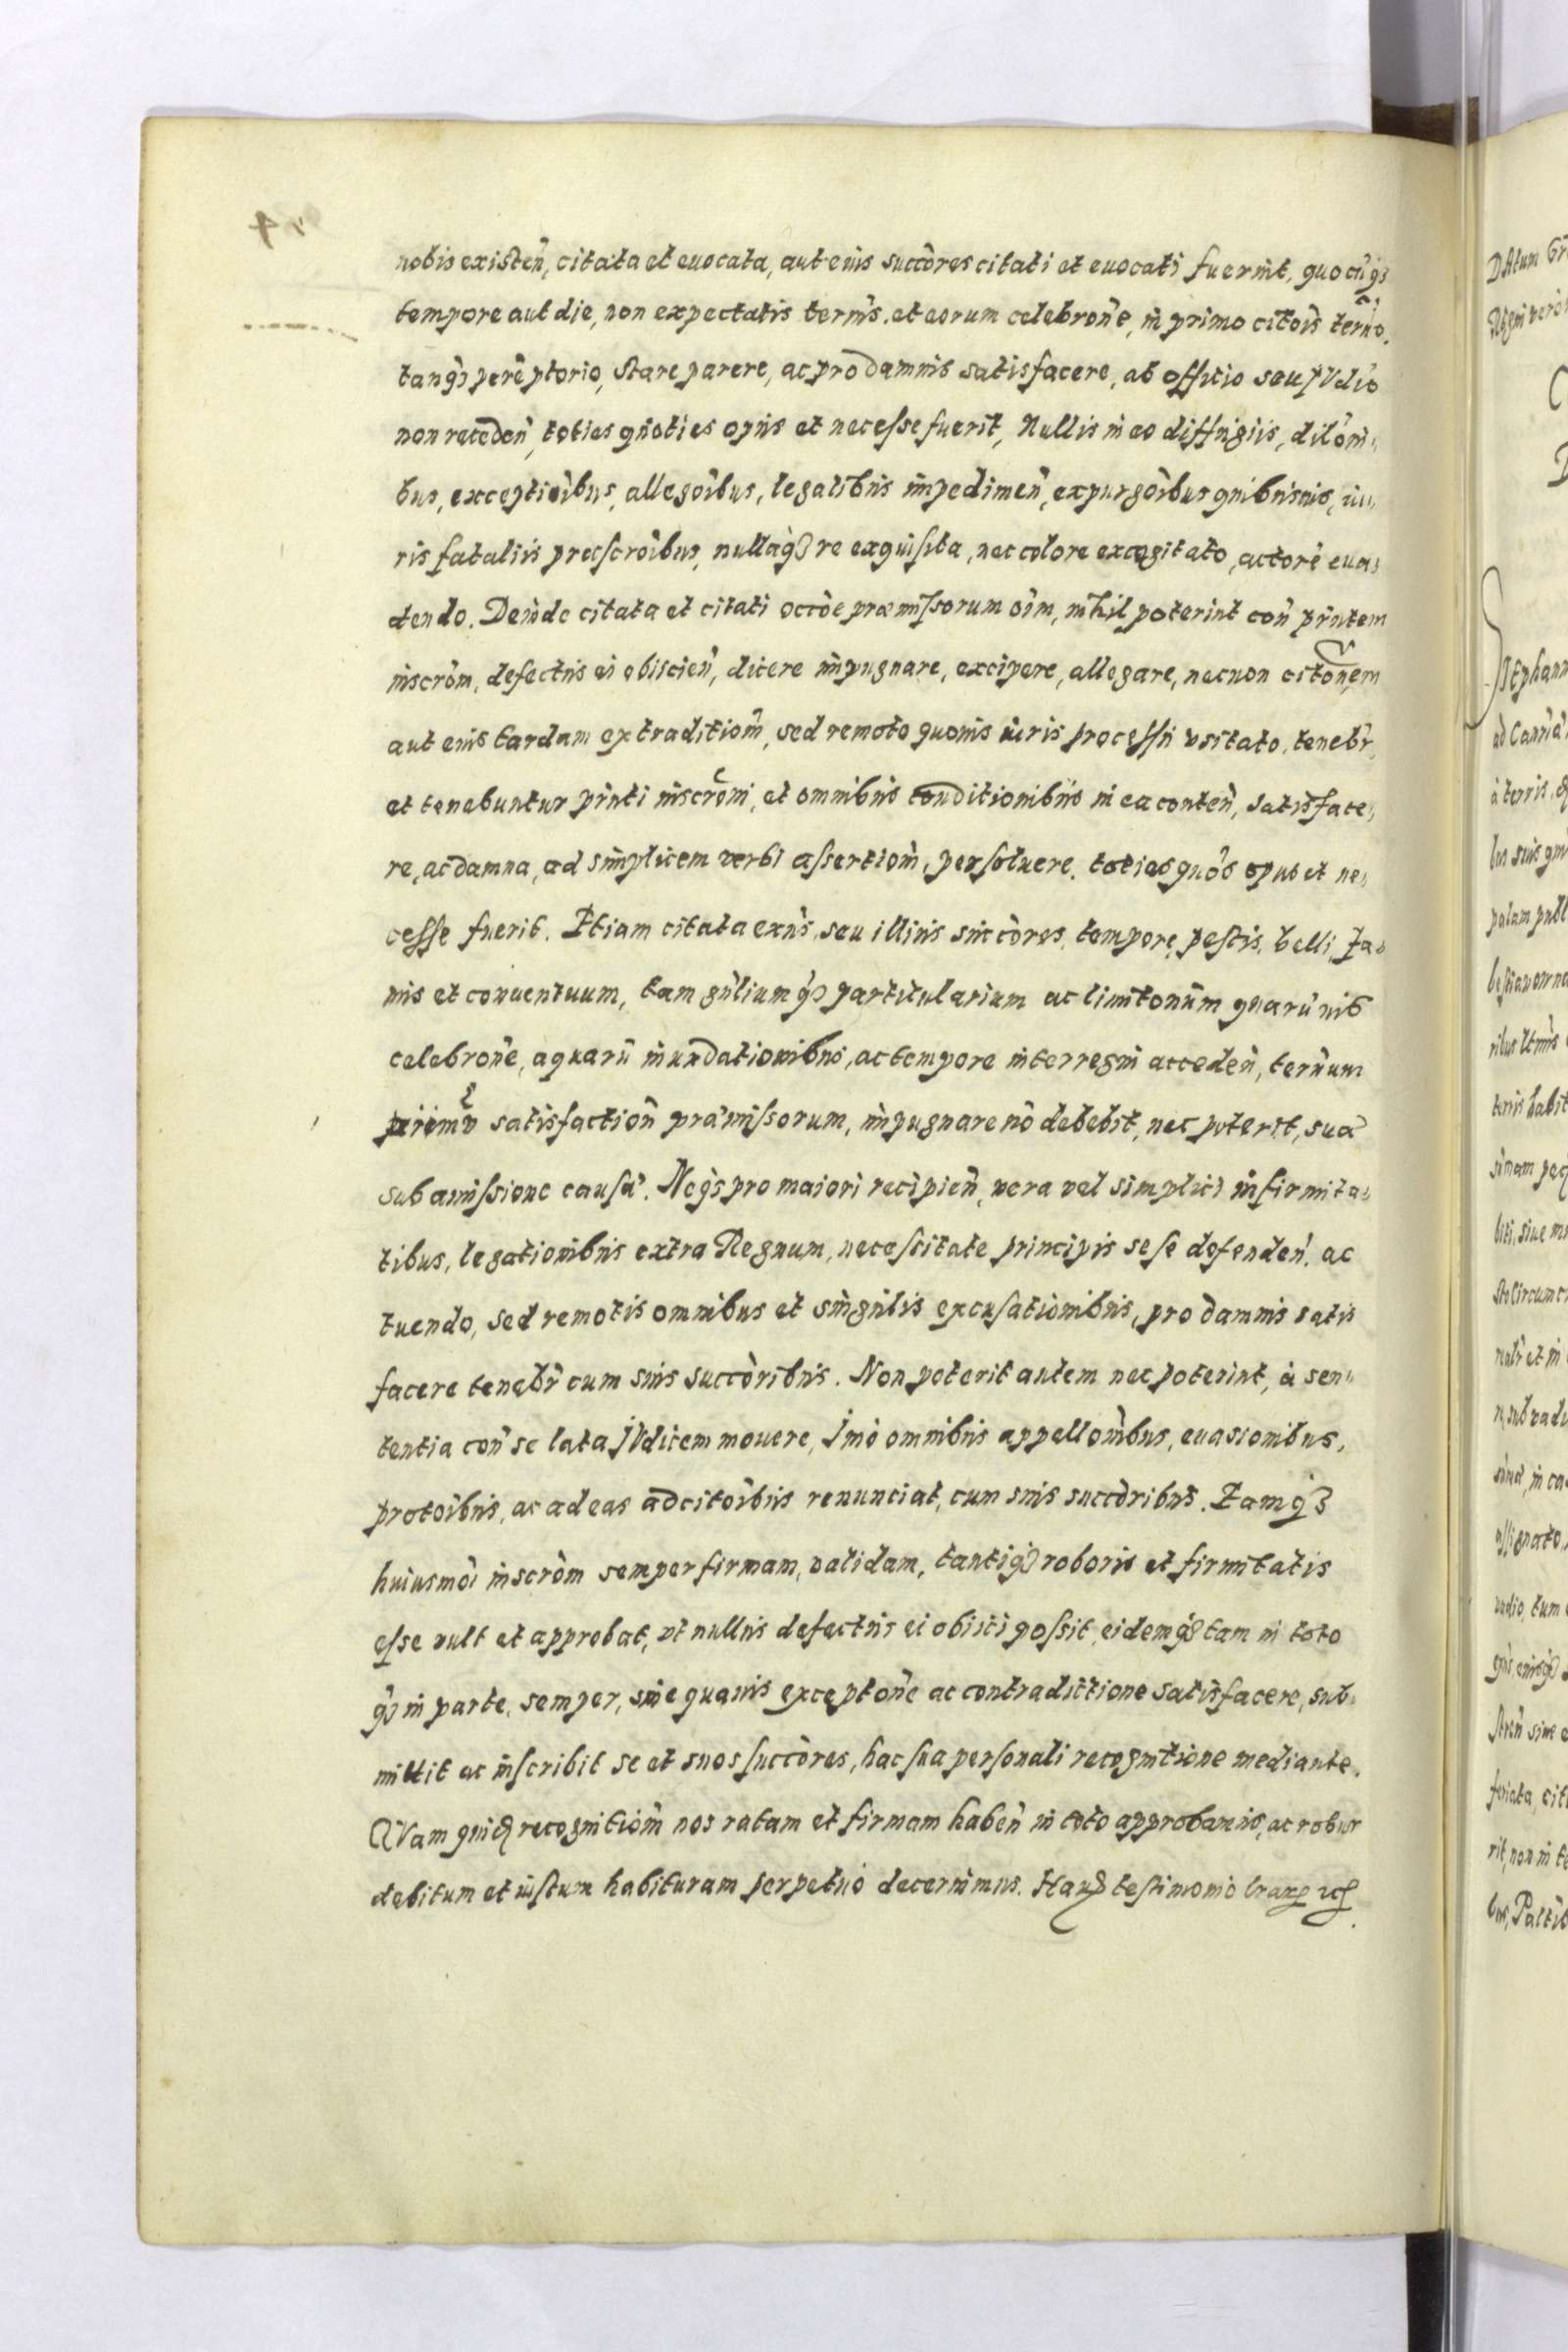 nobis existen̄, citata et euocata, aut eius succōres citati et euocati fuerint, quocūq3
tempore aut die, non expectatis termīs. et eorum celebronē, in primo citōis termō.
tanq̃3 perēptorio, Stare parere, ac pro damnis satisfacere, ab officio seu JVdīo
non receden̄, toties quoties opus et necesse fuerit, Nullis in eo diffugiis, dilōni=
bus, exceptiōibus, allegōibus, legalibus impedimen̄, expurgōibus quibusuis, iu=
ris fataliis prescrōibus, nullaq̃3 re exquisita, nec colore excogitato, actorē eua=
dendo. Deinde citata et citati occōe præmissorum oīm, nihil poterint con̄ pn̄tem
inscrōm, defectus ei obiicien̄, dicere impugnare, excipere, allegare, necnon citonem
aut eius tardam extraditiom̄, sed remoto quouis iuris processu vsitato, tenebr̄,
et tenebuntur pn̄ti inscrōni, et omnibus conditionibus in ea conten̄, satisface=
re, ac damna, ad simplicem verbi assertiom̄, persoluere. toties quōs opus et ne=
cesse fuerit. Etiam citata exn̄s, seu illius succōres, tempore pestis, belli, Fa=
mis et conuentuum, tam gn̄lium q̃3 particularium ac limitonum quarūuis
celebronē, aquarū inundationibus, ac tempore interregni acceden̄, ternum
primū satisfaction̄ præmissorum, impugnare nō debebit, nec poterit, sua
sub amissione causæ. Neq̃3 pro maiori recipien̄, vera vel simplici infirmita=
tibus, legationibus extra Regnum, necessitate principis sese defenden̄. ac
tuendo, sed remotis omnibus et singulis excusationibus, pro damnis satis
facere tenebr̄ cum suis succōribus. Non poterit autem nec poterint, à sen=
tentia con̄ se lata JVdicem mouere, Jmò omnibus appellonibus, euasionibus,
protōibus, ac ad eas adcitōibus renunciat, cum suis succōribus. Eamq̃3
huiusmōi inscrōm semper firmam, validam, tantiq̃3 roboris et firmitatis
esse vult et approbat, vt nullus defectus ei obiici possit, eidemq̃3 tam in toto
q̃3 in parte, semper, sine quauis exceptonē ac contradictione satisfacere, sub=
mittit ac inscribit se et suos succōres, hac sua personali recognitione mediante.
QVam quid recognitiom̄ nos ratam et firmam haben̄ in toto approbamus, ac robur
debitum et iustum habituram perpetuò decernimus. Harꝫ testimonio lrarꝫ etc̄.